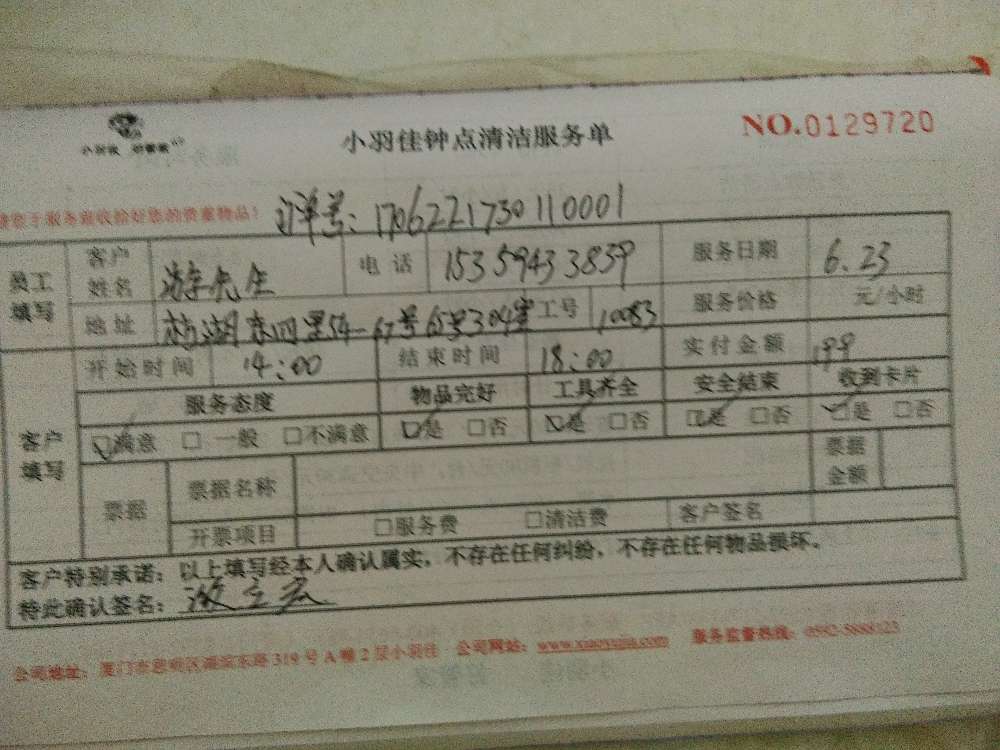 小羽佳 好管家
小羽佳钟点清洁服务单
NO.0129720
请您于服务前收拾好您的贵重物品!
订单号:170622173011 0001
员工填写 客户姓名 游先生 电话 15359433839 服务日期 6.23
地址 东四里54-67号65号304室 工号 10083 服务价格 元/小时
客户填写 开始时间 14:00 结束时间 18:00 实付金额 199
服务态度 物品完好 工具齐全 安全结束 收到卡片
☑满意 □一般 □不满意 ☑是 □否 ☑是 □否 ☑是 □否 ☑是 □否
票据 票据名称 票据金额
开票项目 □服务费 □清洁费 客户签名
客户特别承诺:以上填写经本人确认属实,不存在任何纠纷,不存在任何物品损坏。
特此确认签名:
公司地址:厦门市思明区湖滨东路319号A幢2层小羽佳 公司网站:www.xiaoyujia.com 服务监督热线:0592-5888123